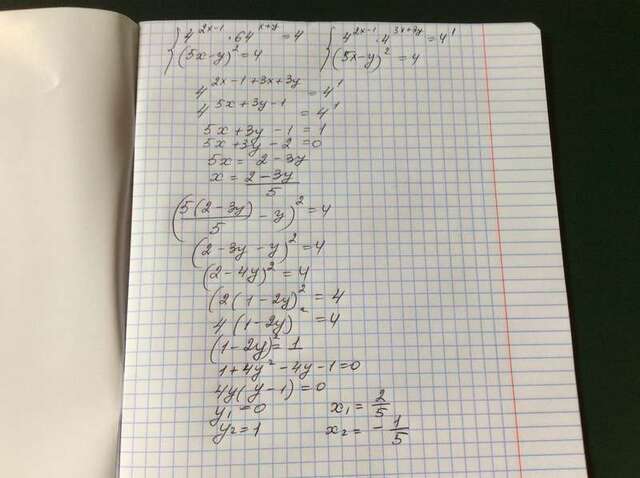 { 4^(2x-1) · 64^(x+y) = 4    { 4^(2x-1) · 4^(3x+3y) = 4^1
{ (5x-y)^2 = 4    { (5x-y)^2 = 4
4^(2x-1+3x+3y) = 4^1
4^(5x+3y-1) = 4^1
5x+3y-1=1
5x+3y-2=0
5x= 2-3y
x = (2-3y)/5
(5(2-3y)/5 - y)^2 = 4
(2-3y-y)^2 = 4
(2-4y)^2 = 4
(2(1-2y)^2 = 4
4(1-2y)^2 = 4
(1-2y)^2 = 1
1+4y^2-4y-1=0
4y(y-1)=0
y1=0    x1 = 2/5
y2=1    x2 = -1/5